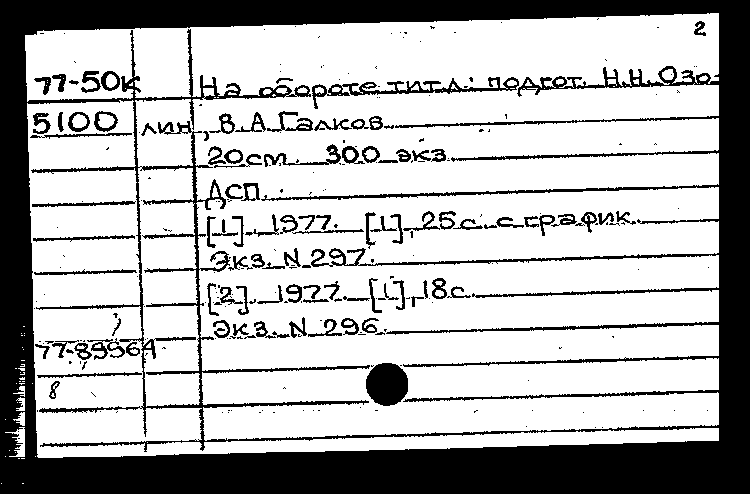 2
77-50к На обороте тит.л.: подгот. Н.Н.Озо-
5100 лин, В.А.Галков.
20см. 300 экз.
ДСП.
[1]. 1977. [1], 25с. с график.
Экз. N 297.
[2]. 1977. [1], 18с.
Экз. N 296.
77-89964
8